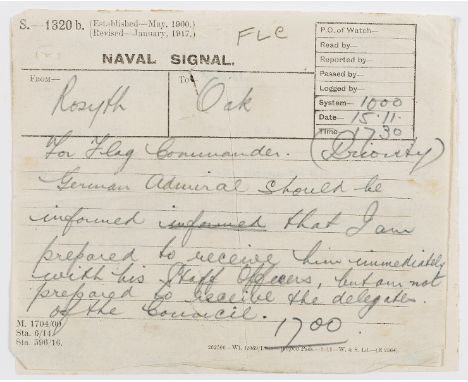 S.— 1320 b. (Established—May, 1900.)
(Revised—January, 1917.)
FLC
NAVAL SIGNAL.
P.O. of Watch—
Read by—
Reported by—
Passed by—
Logged by—
System— 1000
Date— 15.11.
Time— 1730
FROM— Rosyth
To— Oak
For Flag Commander. (Priority)
German Admiral should be
informed informed that I am
prepared to receive him immediately
with his Staff Officers, but am not
prepared to receive the delegates
of the Council.
1700.
M. 1704/00
Sta. 6/14.
Sta. 596/16.
W. & S. Ltd.